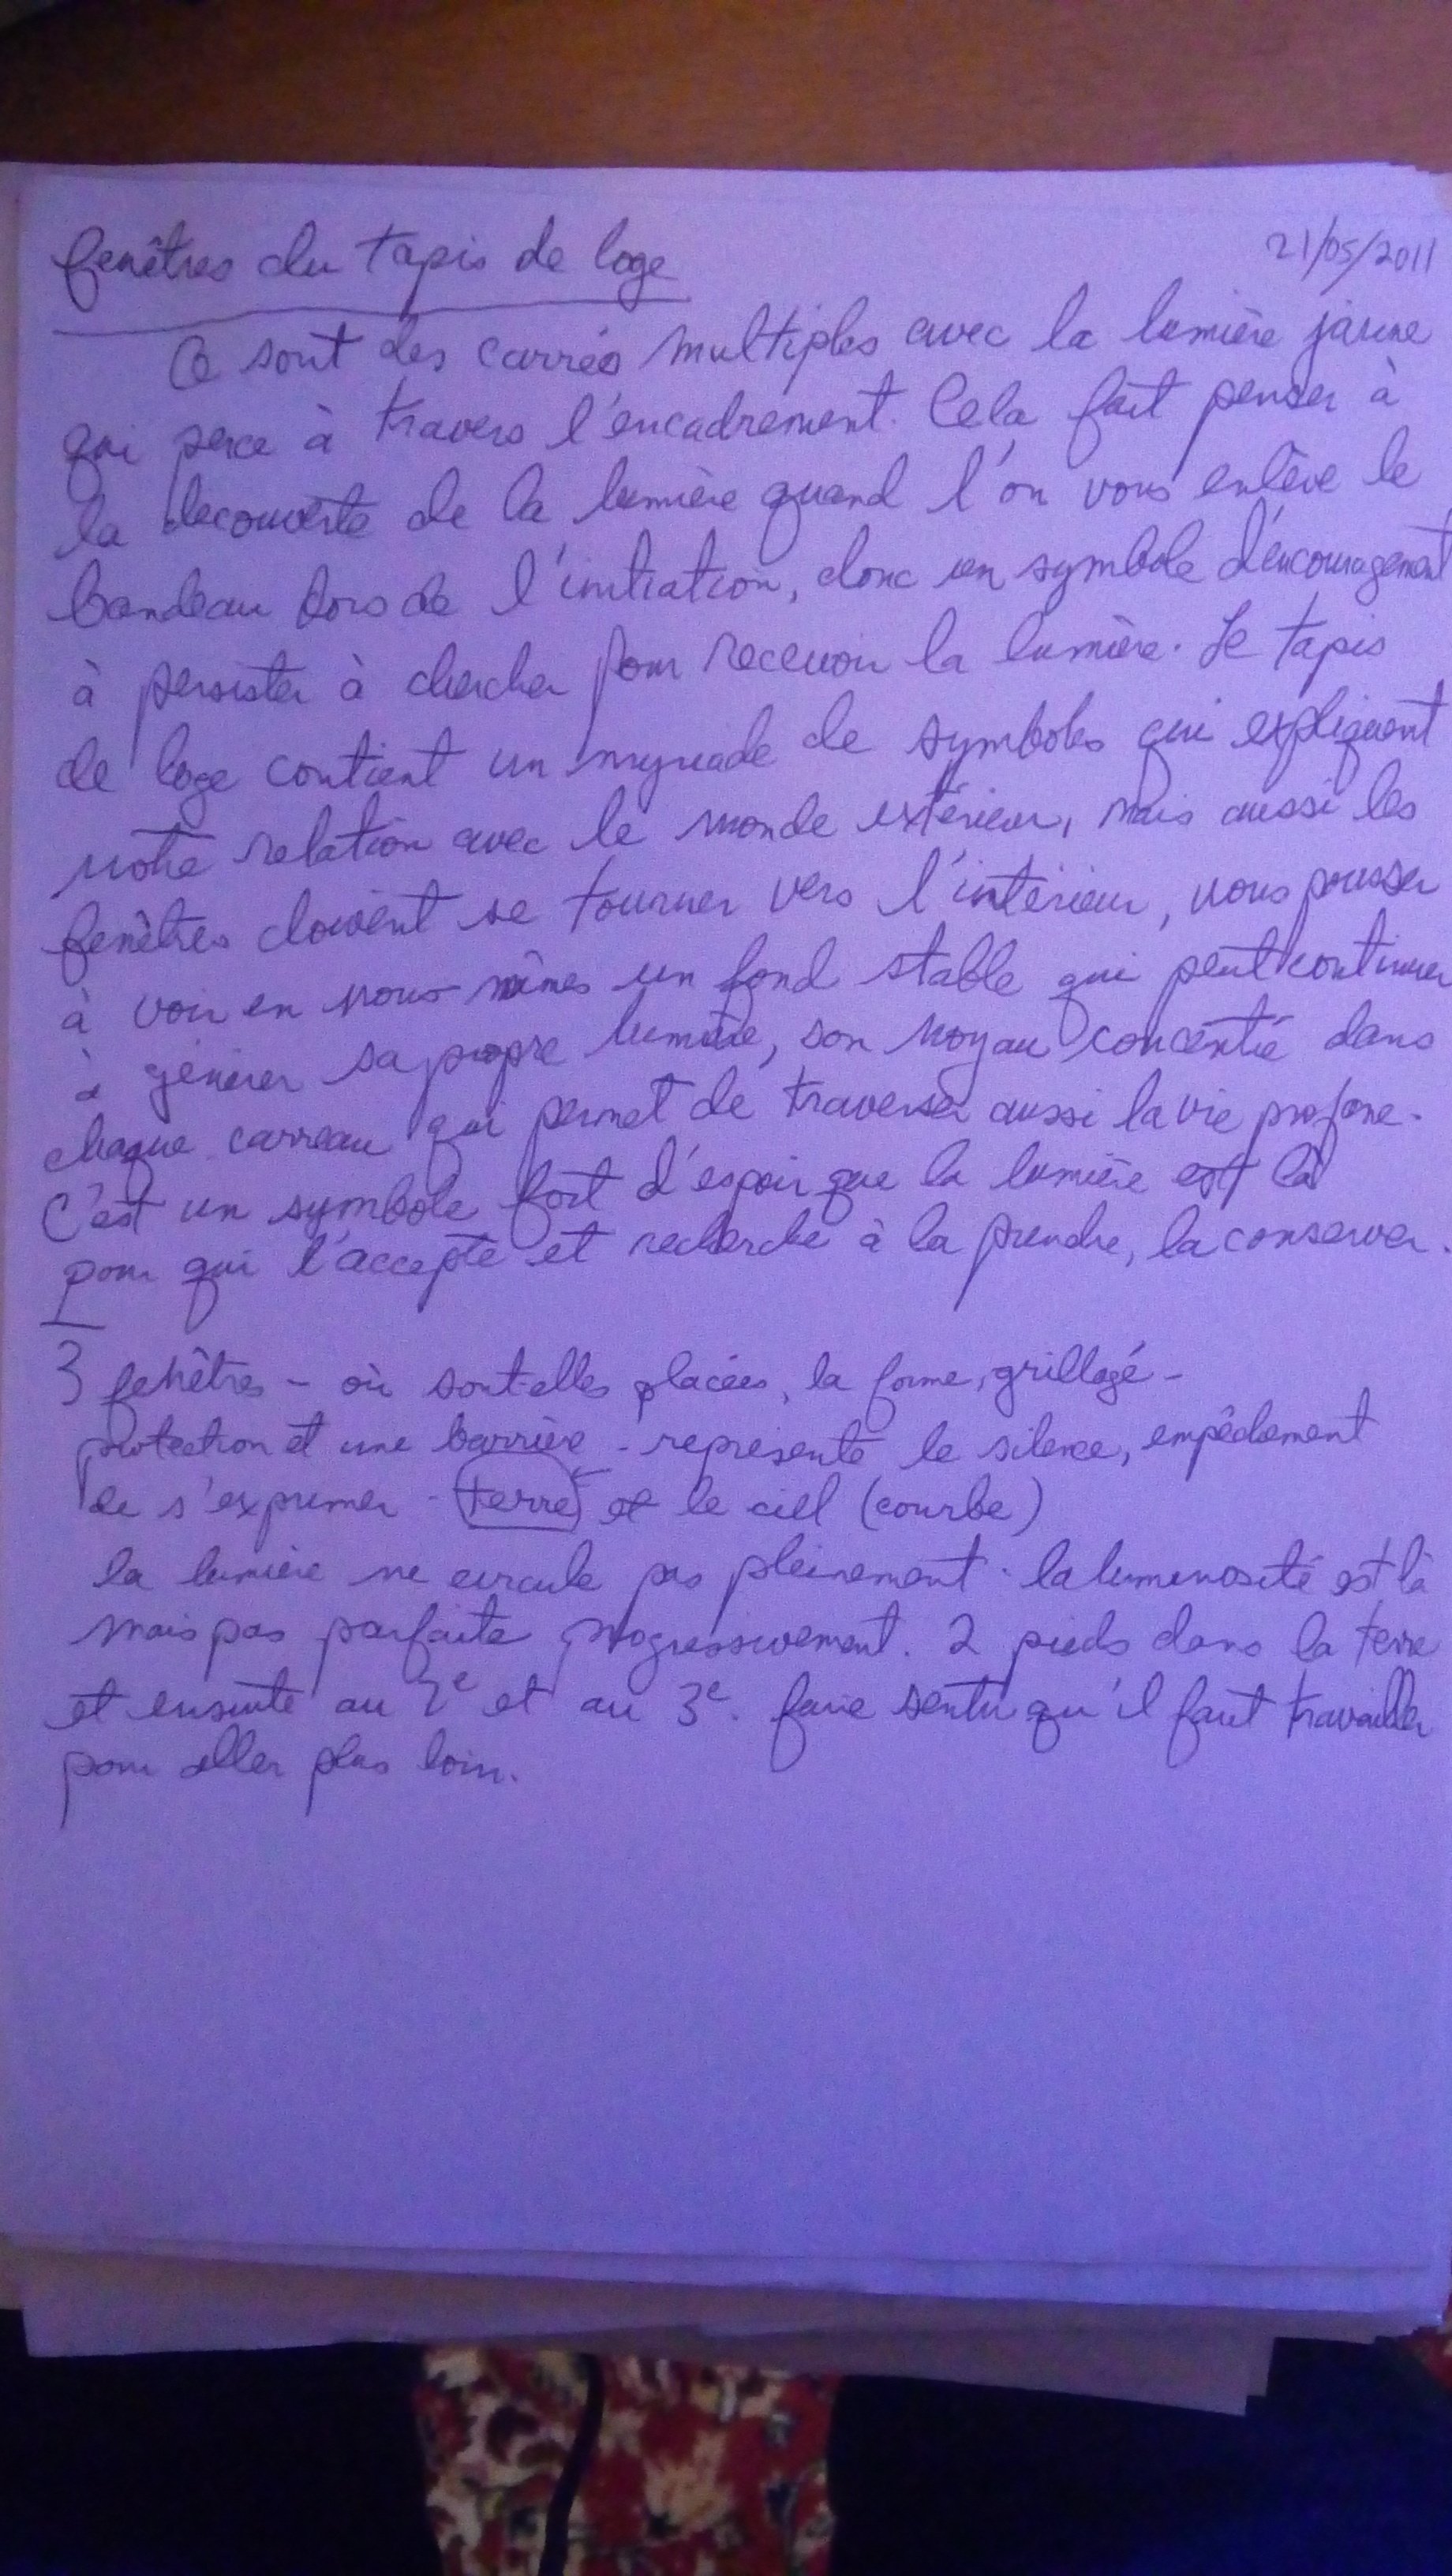 fenêtres du tapis de loge
21/05/2011
Ce sont des carrés multiples avec la lumière jaune
qui perce à travers l'encadrement. Cela fait penser à
la decouverte de la lumière quand l'on vous enlève le
bandeau lors de l'initiation, donc un symbole d'encouragement
à persister à chercher pour recevoir la lumière. Le tapis
de loge contient un myriade de symboles qui expliquent
notre relation avec le monde extérieur, mais aussi les
fenêtres doivent se tourner vers l'intérieur, nous pousser
à voir en nous-mêmes un fond stable qui peut continuer
à générer sa propre lumière, son noyau concentré dans
chaque carreau qui permet de traverser aussi la vie profane.
C'est un symbole fort d'espoir que la lumière est là
pour qui l'accepte et recherche à la prendre, la conserver.
3 fenêtres - où sont-elles placées, la forme, grillagé -
protection et une barrière - représente le silence, empêchement
de s'exprimer - terre et le ciel (courbe)
la lumière ne circule pas pleinement. la luminosité est là
mais pas parfaite progressivement. 2 pieds dans la terre
et ensuite au 2e et au 3e. faire sentir qu'il faut travailler
pour aller plus loin.